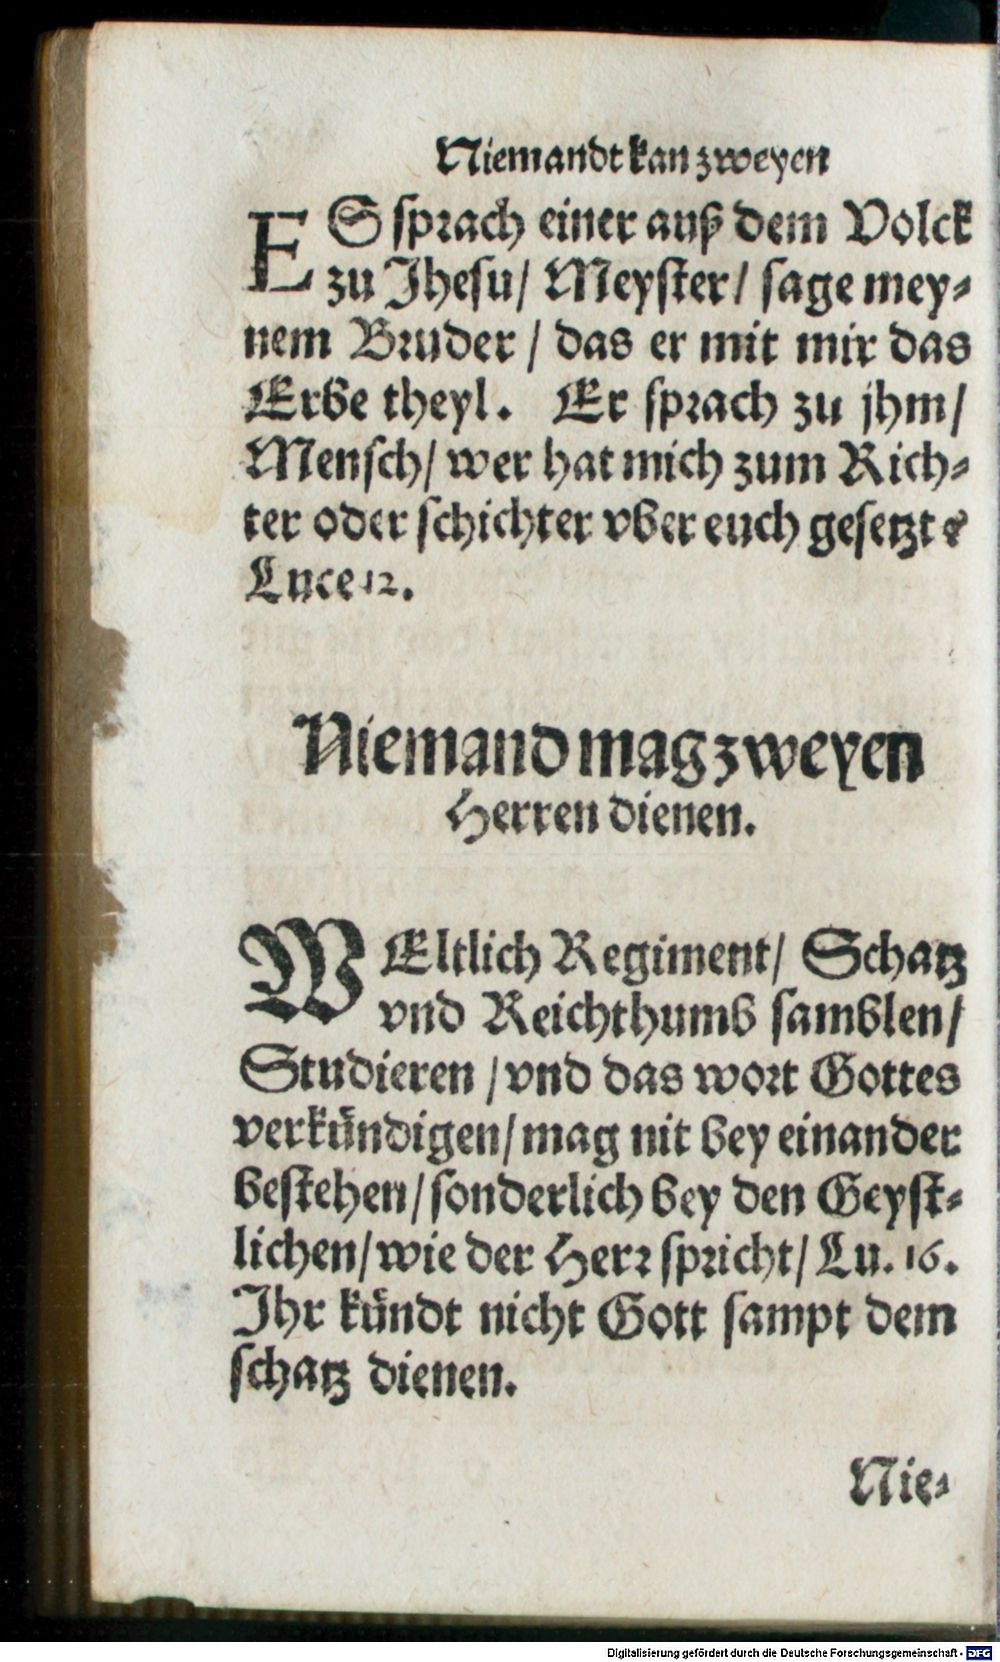 Niemandt kan zweyen
ES sprach einer auß dem Volck
zu Jhesu/ Meyster/ sage mey-
nem Bruder/ das er mit mir das
Erbe theyl. Er sprach zu jhm/
Mensch/ wer hat mich zum Rich-
ter oder schichter vber euch gesetzt?
Luce 12.
Niemand mag zweyen
Herren dienen.
WEltlich Regiment/ Schatz
vnd Reichthumb samblen/
Studieren/ vnd das wort Gottes
verkündigen/ mag nit bey einander
bestehen/ sonderlich bey den Geyst-
lichen/ wie der Herr spricht/ Lu. 16.
Jhr kündt nicht Gott sampt dem
schatz dienen.
Nie-
Digitalisierung gefördert durch die Deutsche Forschungsgemeinschaft - DFG